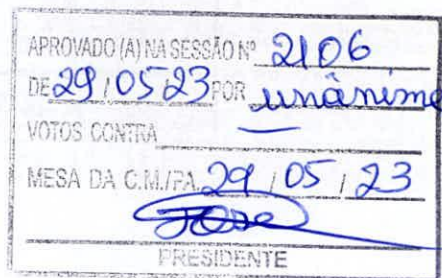 APROVADO (A) NA SESSÃO Nº 2106
DE 29 / 05 23 POR unânime
VOTOS CONTRA —
MESA DA C.M./PA. 29 / 05 / 23
PRESIDENTE